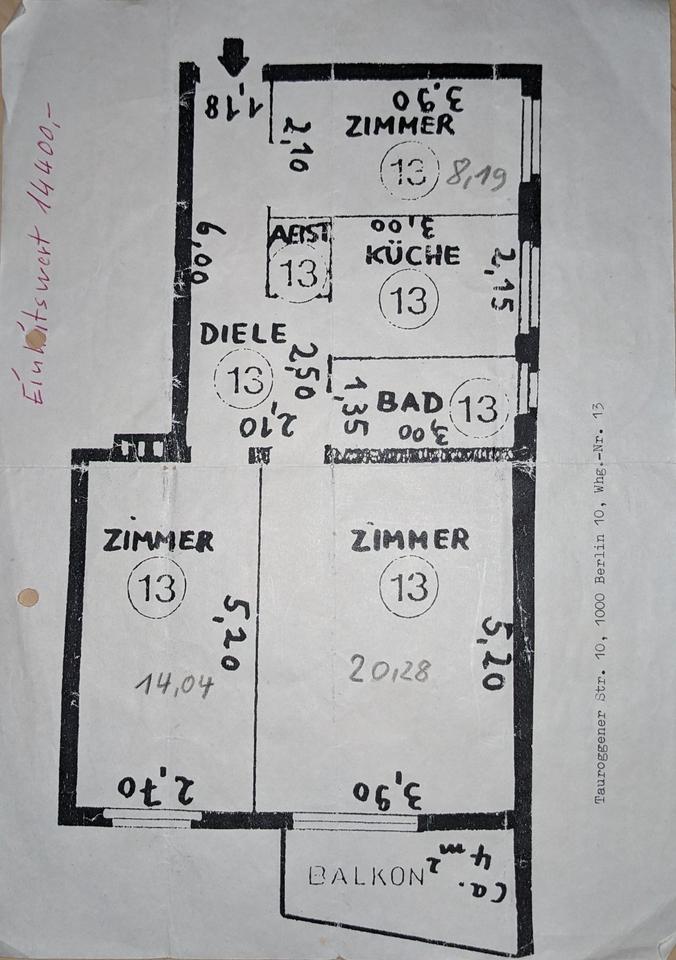 Einheitswert 14400,-
1,18
2,10
3,90
ZIMMER
13
8,19
6,00
AEIST
13
3,00
KÜCHE
13
2,15
DIELE
13
2,50
2,10
1,35
BAD
13
3,00
ZIMMER
13
5,20
14,04
2,70
ZIMMER
13
5,20
20,28
3,90
BALKON
ca.
4 m²
Tauroggener Str. 10, 1000 Berlin 10, Whg.-Nr. 13